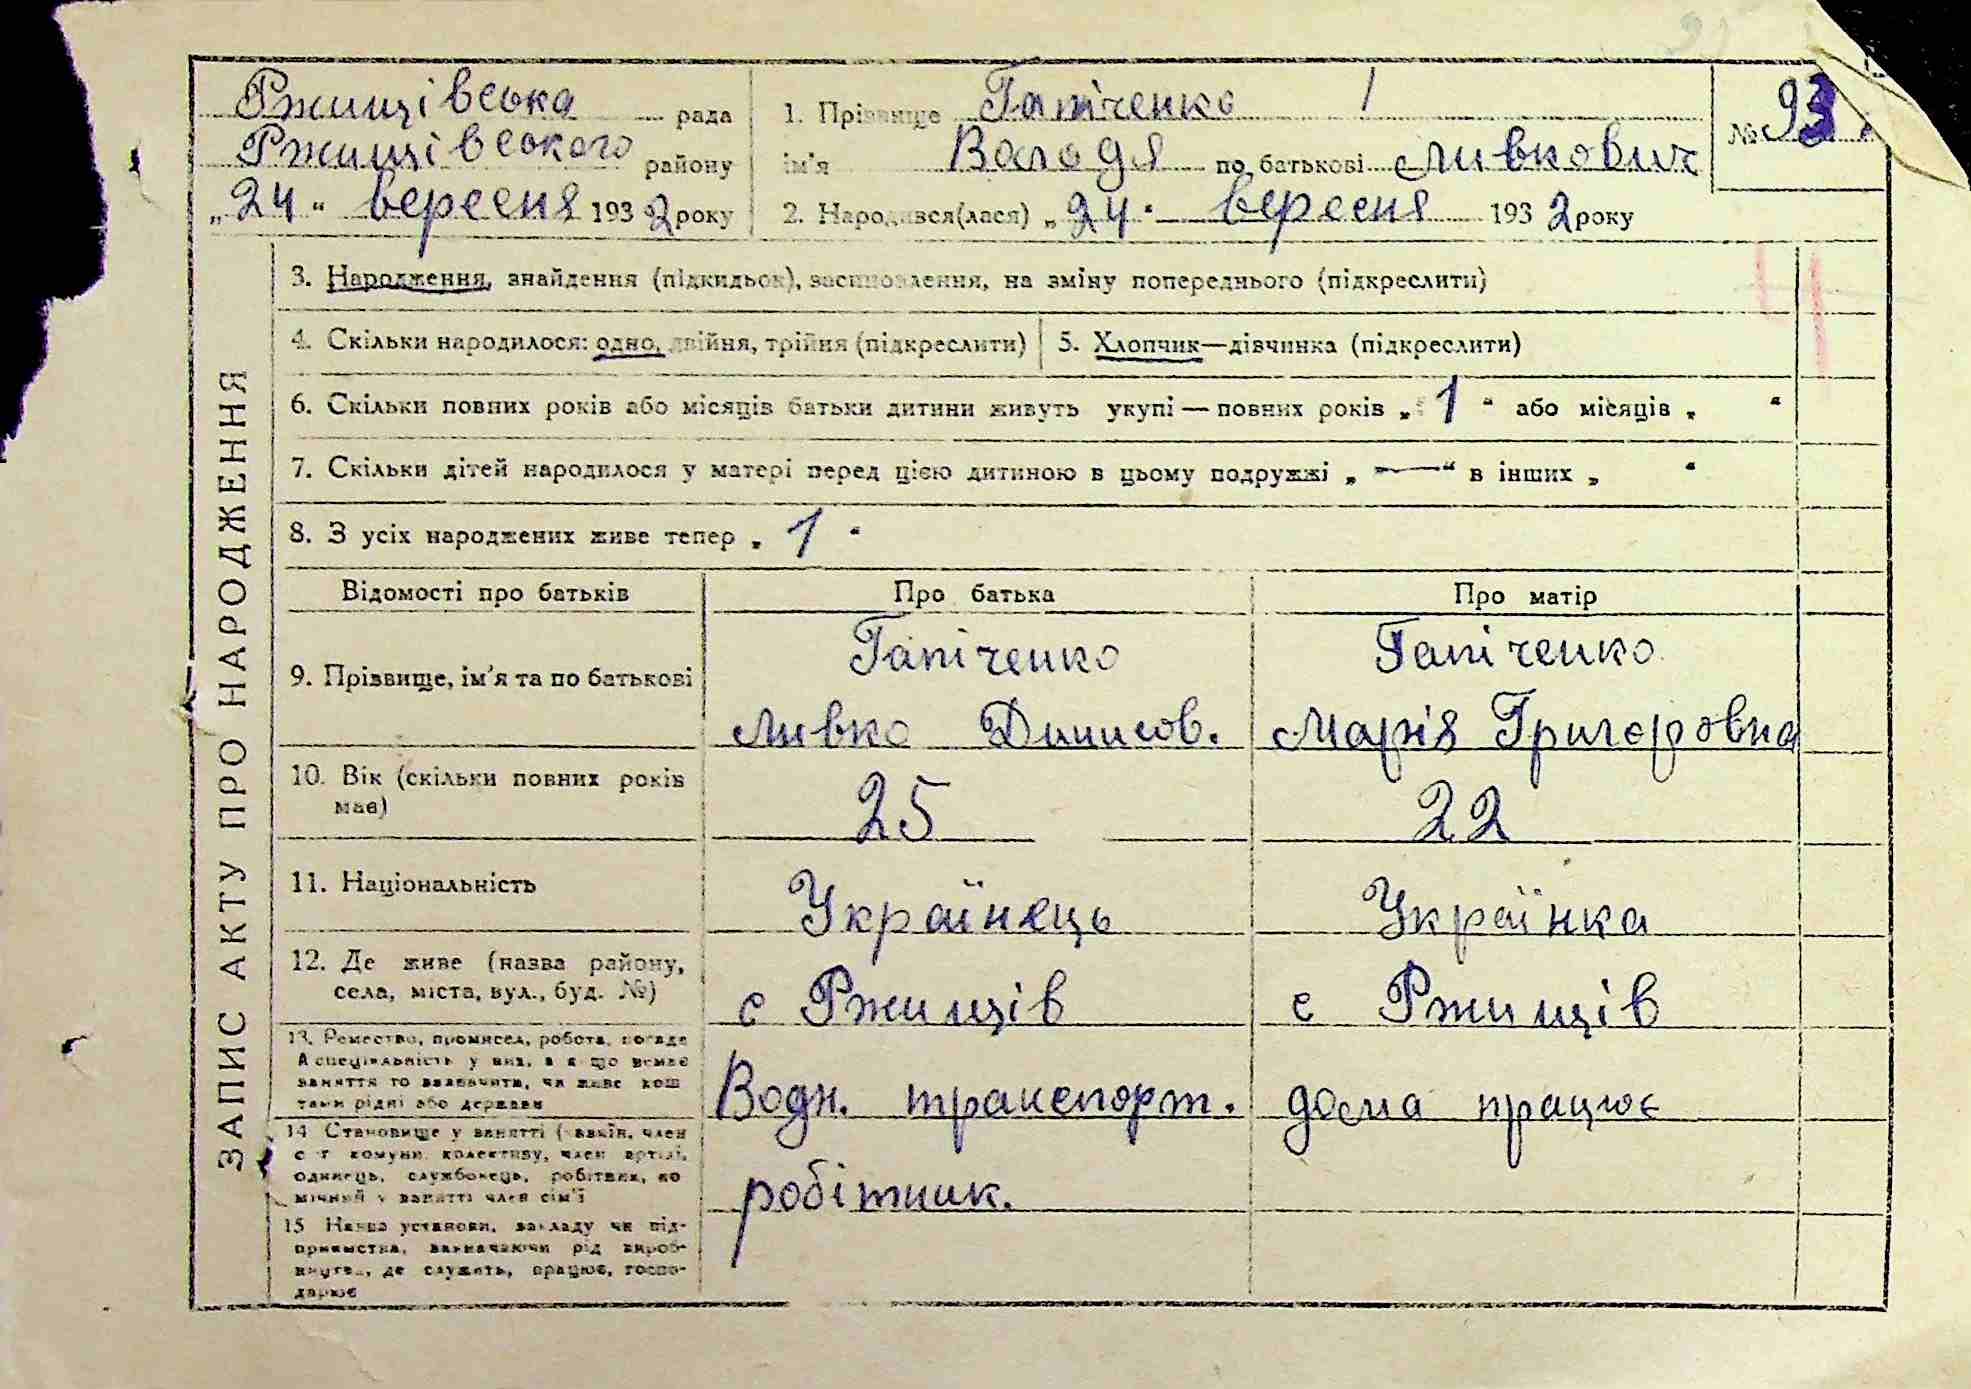 Ржищівська рада
Ржищівського району
„24“ вересня 1932 року
1. Прізвище Гапіченко
ім'я Володя по батькові Ливкович
2. Народився(лася) „24“ вересня 1932 року
№ 93
ЗАПИС АКТУ ПРО НАРОДЖЕННЯ
3. Народження, знайдення (підкидьок), засиновлення, на зміну попереднього (підкреслити)
4. Скільки народилося: одно, двійня, трійня (підкреслити)
5. Хлопчик—дівчинка (підкреслити)
6. Скільки повних років або місяців батьки дитини живуть укупі — повних років „1“ або місяців „ “
7. Скільки дітей народилося у матері перед цією дитиною в цьому подружжі „—“ в інших „ “
8. З усіх народжених живе тепер „1“
Відомості про батьків Про батька Про матір
9. Прізвище, ім'я та по батькові
Гапіченко
Ливко Динисов.
Гапіченко
Марія Григоровна
10. Вік (скільки повних років
має)
25
22
11. Національність
Українець
Українка
12. Де живе (назва району,
села, міста, вул., буд. №)
с Ржищів
с Ржищів
13. Ремество, промисел, робота, посада
й спеціяльність у них, а якщо немає
заняття то зазначити, чи живе кош
тами рідні або держави
Водн. транспорт.
дома працює
14 Становище у занятті (хазяїн, член
с г комуни, колективу, член артілі,
одинець, службовець, робітник, по
мічний у занятті член сім'ї
робітник.
15 Назва установи, закладу чи під-
приємства, зазначаючи рід вироб-
ництва, де служить, працює, госпо-
дарює